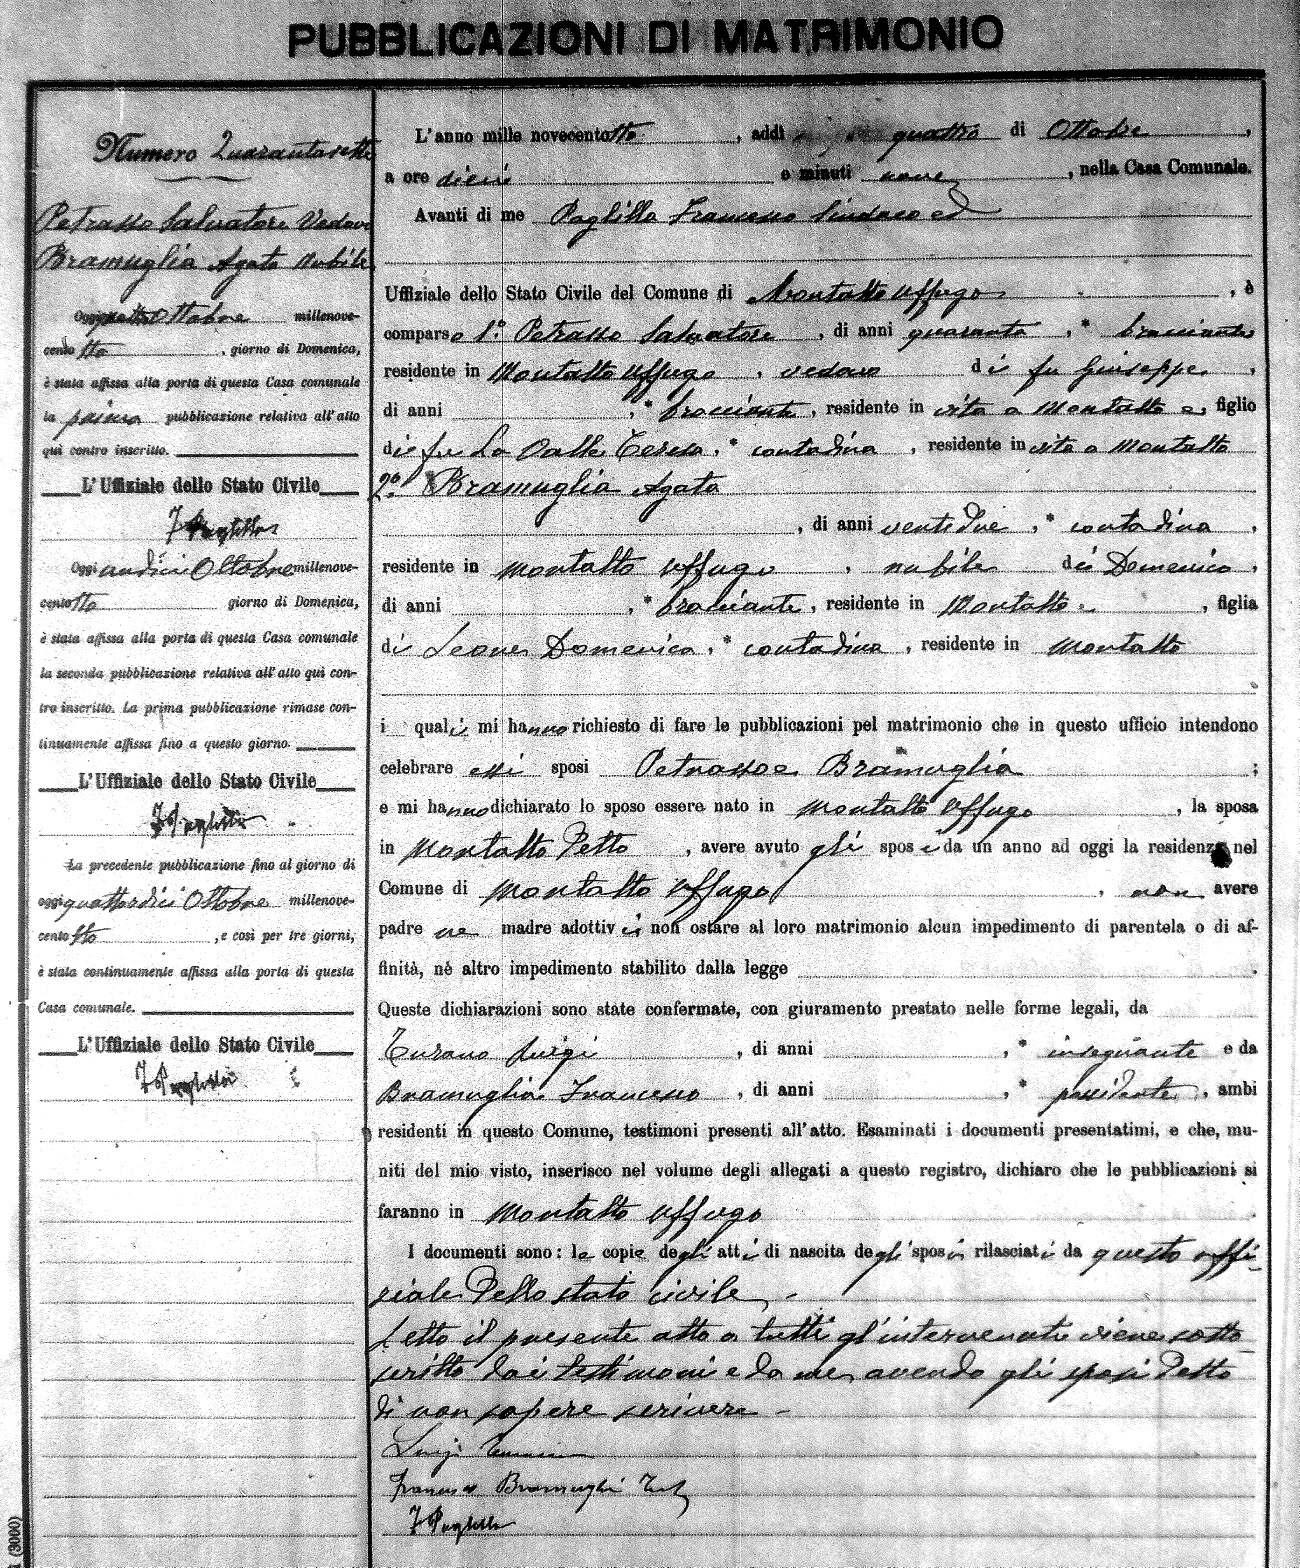 PUBBLICAZIONI DI MATRIMONIO
Numero Quarantasette
Petrasso Salvatore Vedovo
Bramuglia Agata Nubile
Oggi quattro Ottobre millenove-
cento otto, giorno di Domenica,
è stata affissa alla porta di questa Casa comunale
la prima pubblicazione relativa all'atto
qui contro inscritto.
L'Uffiziale dello Stato Civile
F Paglilla
Oggi undici Ottobre millenove-
cento otto giorno di Domenica,
è stata affissa alla porta di questa Casa comunale
la seconda pubblicazione relativa all'atto qui con-
tro inscritto. La prima pubblicazione rimase con-
tinuamente affissa fino a questo giorno.
L'Uffiziale dello Stato Civile
F Paglilla
La precedente pubblicazione fino al giorno di
oggi quattordici Ottobre millenove-
cento otto, e così per tre giorni,
è stata continuamente affissa alla porta di questa
Casa comunale.
L'Uffiziale dello Stato Civile
F Paglilla
L'anno mille novecentotto, addì quattro di Ottobre,
a ore dieci e minuti nove, nella Casa Comunale.
Avanti di me Paglilla Francesco Sindaco ed
Uffiziale dello Stato Civile del Comune di Montalto Uffugo, è
comparso 1.° Petrasso Salvatore, di anni quaranta, * bracciante
residente in Montalto Uffugo, vedovo di fu Giuseppe,
di anni , * bracciante, residente in vita a Montalto e, figlio
di fu La Valle Teresa, * contadina, residente in vita a Montalto
2° Bramuglia Agata
, di anni ventidue, * contadina,
residente in Montalto Uffugo, nubile di Domenico,
di anni , * bracciante, residente in Montalto, figlia
di Leone Domenica, * contadina, residente in Montalto
i quali mi hanno richiesto di fare le pubblicazioni pel matrimonio che in questo ufficio intendono
celebrare essi sposi Petrasso e Bramuglia ;
e mi hanno dichiarato lo sposo essere nato in Montalto Uffugo, la sposa
in Montalto Detto, avere avuto gli sposi da un anno ad oggi la residenza nel
Comune di Montalto Uffugo, non avere
padre ne madre adottivi non ostare al loro matrimonio alcun impedimento di parentela o di af-
finità, nè altro impedimento stabilito dalla legge .
Queste dichiarazioni sono state confermate, con giuramento prestato nelle forme legali, da
Turano Luigi, di anni , * insegnante e da
Bramuglia Francesco, di anni , * possidente, ambi
residenti in questo Comune, testimoni presenti all'atto. Esaminati i documenti presentatimi, e che, mu-
niti del mio visto, inserisco nel volume degli allegati a questo registro, dichiaro che le pubblicazioni si
faranno in Montalto Uffugo
I documenti sono: le copie degli atti di nascita degli sposi rilasciati da questo uffi-
ziale Dello stato civile
Letto il presente atto a tutti gl'intervenuti viene sotto
scritto dai testimoni e da me, avendo gli sposi Detto
di non sapere scrivere
Luigi Turano
Francesco Bramuglia
F Paglilla
(3000)